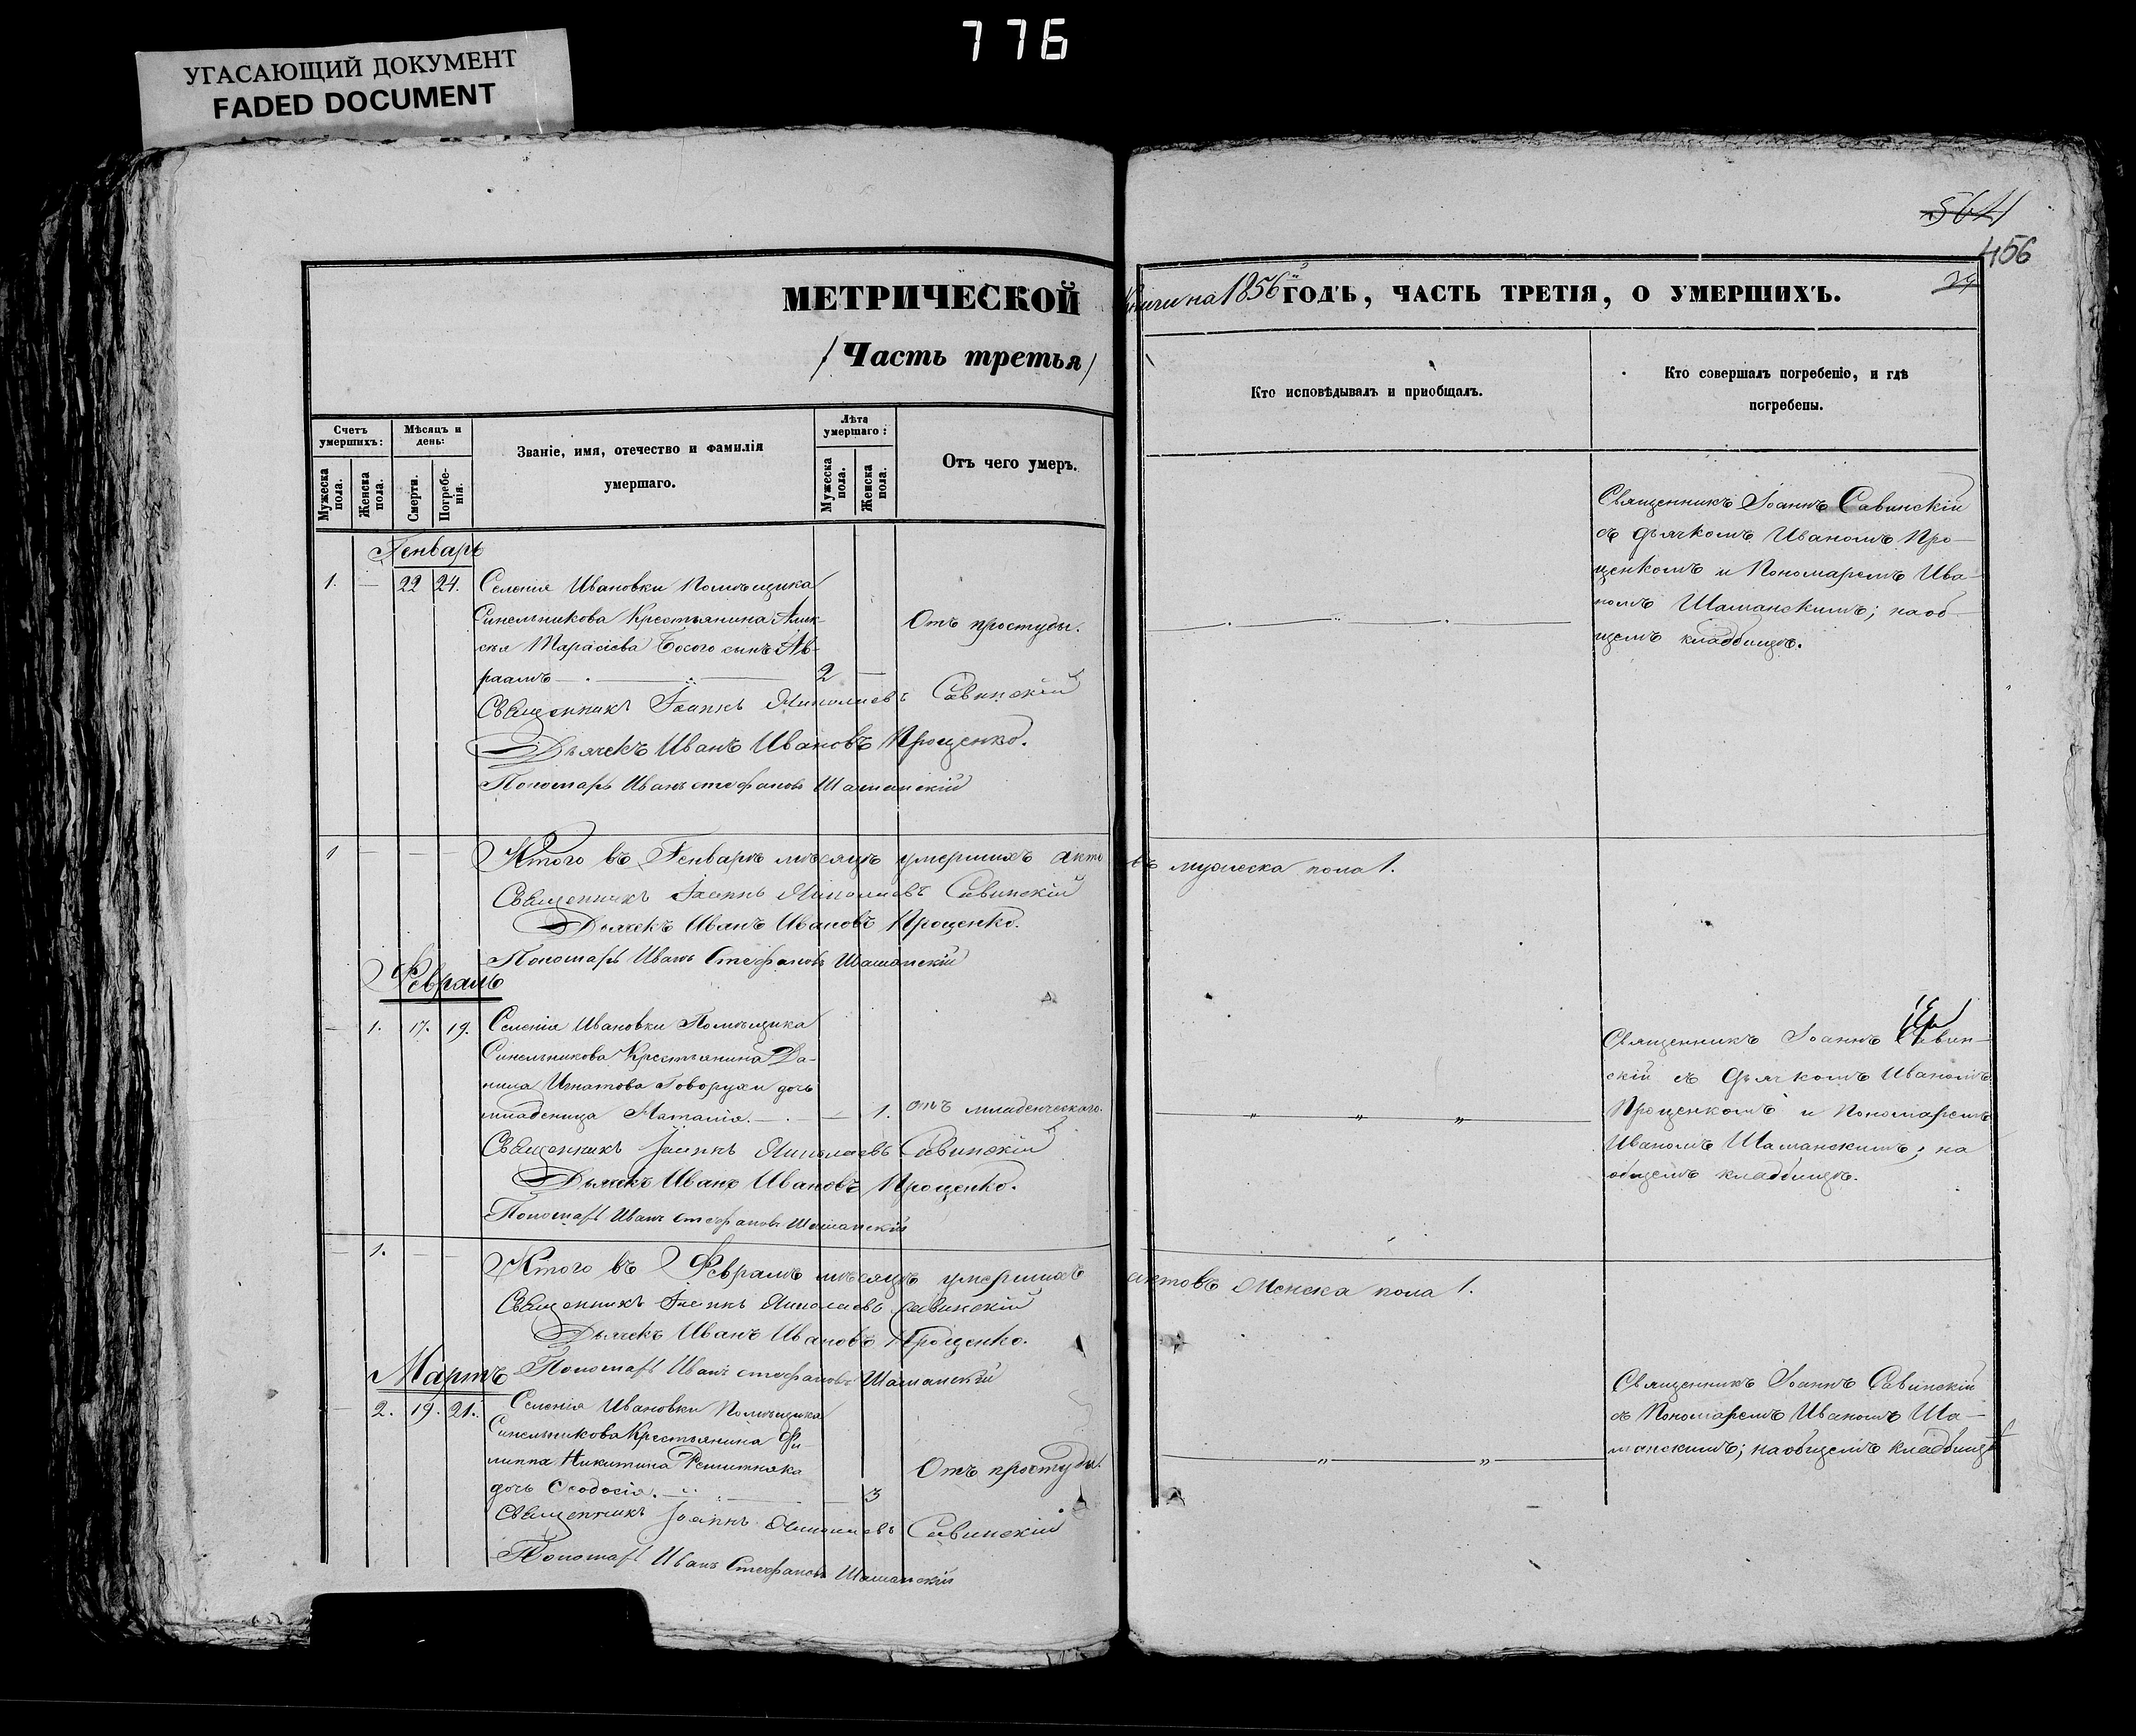 776
УГАСАЮЩИЙ ДОКУМЕНТ
FADED DOCUMENT
5641
456
МЕТРИЧЕСКОЙ книги на 1856й ГОДЪ, ЧАСТЬ ТРЕТІЯ, О УМЕРШИХЪ.
Часть третья
Счетъ умершихъ:
Мужеска пола.
Женска пола.
Мѣсяцъ и день:
Смерти.
Погребенія.
Званіе, имя, отечество и фамилія
умершаго.
Лѣта умершаго:
Мужеска пола.
Женска пола.
Отъ чего умеръ.
Кто исповѣдывалъ и приобщалъ.
Кто совершалъ погребеніе, и гдѣ
погребены.
Генварь
1. — 22 24. Селенія Ивановки Помѣщика
Синельникова Крестьянина Алек-
сѣя Тарасіева Босого сынъ Ав-
раамъ 2 — Отъ простуды.
Священникъ Іоаннъ Савинскій
съ дьячкомъ Иваномъ Про-
ценкомъ и Пономаремъ Ива-
номъ Шаманскимъ; на об-
щемъ кладбищѣ.
Священникъ Іоаннъ Николаевъ Савинскій
Дьячекъ Иванъ Ивановъ Проценко.
Пономарь Иванъ Стефановъ Шаманскій
1 — — — Итого въ Генварѣ мѣсяцѣ умершихъ актовъ мужеска пола 1.
Священникъ Іоаннъ Николаевъ Савинскій
Дьячекъ Иванъ Ивановъ Проценко.
Пономарь Иванъ Стефановъ Шаманскій
Февраль
— 1. 17. 19. Селенія Ивановки Помѣщика
Синельникова Крестьянина Да-
нила Игнатова Говорухи дочь
младеница Наталія. — 1. отъ младенческаго.
Священникъ Іоаннъ Савин-
скій съ дьячкомъ Иваномъ
Проценкомъ и Пономаремъ
Иваномъ Шаманскимъ; на
общемъ кладбищѣ.
Священникъ Іоаннъ Николаевъ Савинскій
Дьячекъ Иванъ Ивановъ Проценко.
Пономарь Иванъ Стефановъ Шаманскій
— 1. — — Итого въ Февралѣ мѣсяцѣ умершихъ актовъ женска пола 1.
Священникъ Іоаннъ Николаевъ Савинскій
Дьячекъ Иванъ Ивановъ Проценко.
Пономарь Иванъ Стефановъ Шаманскій
Мартъ
— 2. 19. 21. Селенія Ивановки Помѣщика
Синельникова Крестьянина Фи-
липпа Никитина Решитняка
дочь Ѳеодосія. — 3 Отъ простуды.
Священникъ Іоаннъ Савинскій
съ Пономаремъ Иваномъ Ша-
манскимъ; на общемъ кладбищѣ
Священникъ Іоаннъ Николаевъ Савинскій
Пономарь Иванъ Стефановъ Шаманскій